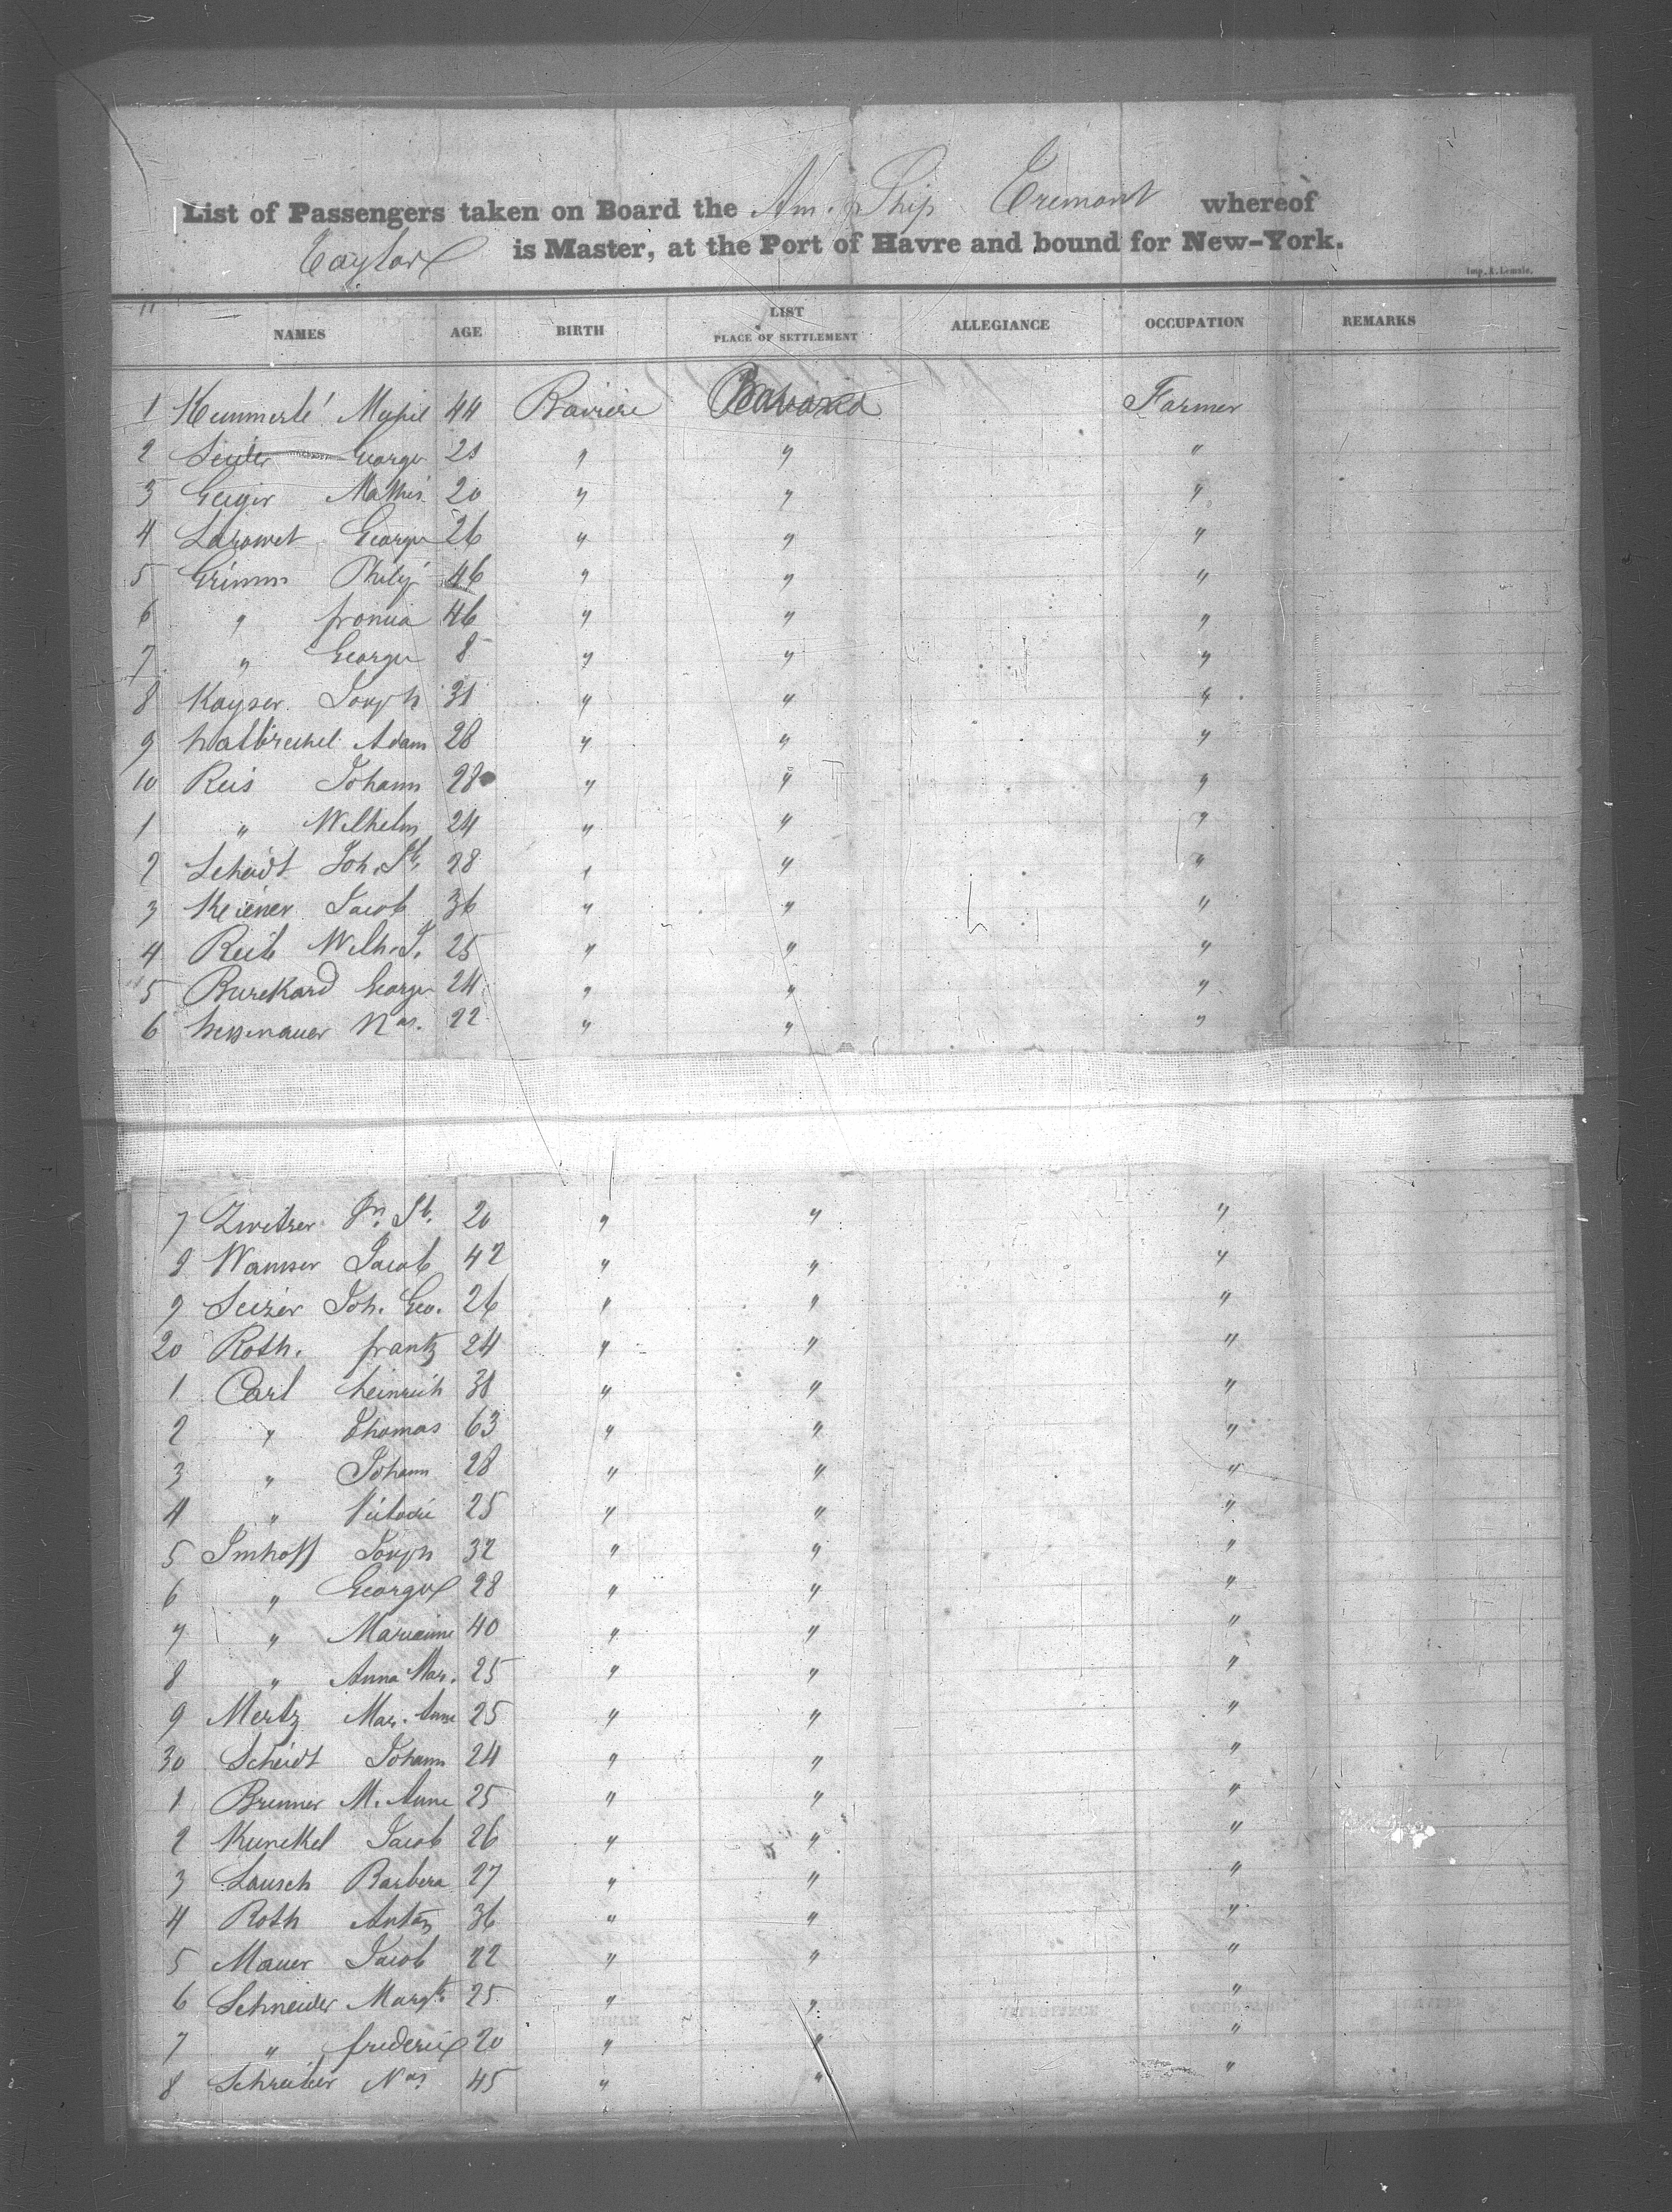 List of Passengers taken on Board the Am. Ship Tremont whereof
Taylor is Master, at the Port of Havre and bound for New-York.
Imp. A. Lemale.
NAMES AGE BIRTH LIST PLACE OF SETTLEMENT ALLEGIANCE OCCUPATION REMARKS
1 Kummerlé 44 Baviere Bavaria Farmer
2 Seiler George 21 " " "
3 Geiger Mathis 20 " " "
4 George 26 " " "
5 Grimm Philip 46 " " "
6 " fronica 46 " " "
7 " George 8 " " "
8 Kayser Joseph 31 " " "
9 Adam 28 " " "
10 Reis Johann 28 " " "
1 " Wilhelm 24 " " "
2 Scheidt Joh. St. 28 " " "
3 Keiener Jacob 36 " " "
4 Reib Wilh. J. 25 " " "
5 Burckard George 24 " " "
6 hessenauer Nas. 22 " " "
7 Zwitzer Jn. St. 20 " " "
8 Wamser Jacob 42 " " "
9 Seizer Joh. Geo. 26 " " "
20 Roth. frantz 24 " " "
1 Carl heinrich 31 " " "
2 " Thomas 63 " " "
3 " Johann 28 " " "
4 " Victorie 25 " " "
5 Imhoff Joseph 32 " " "
6 " George 28 " " "
7 " Marianne 40 " " "
8 " Anna Mar. 25 " " "
9 Mertz Mar. Anne 25 " " "
30 Scheidt Johann 24 " " "
1 Brenner M. Anne 25 " " "
2 Kunckel Jacob 26 " " "
3 Lausch Barbera 27 " " "
4 Roth Anton 36 " " "
5 Mauer Jacob 22 " " "
6 Schneider Margte. 25 " " "
7 " frederic 20 " " "
8 Schreiber Nas 45 " " "